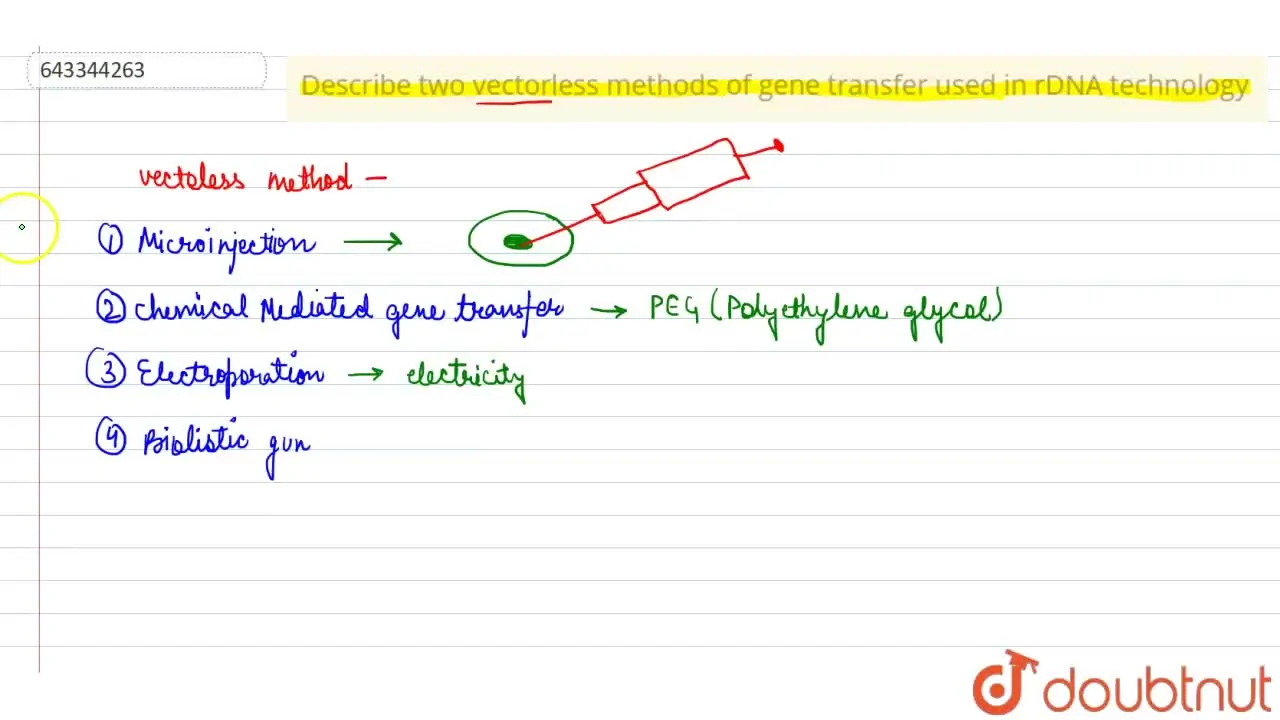 643344263
Describe two vectorless methods of gene transfer used in rDNA technology
vectoless method -
① Microinjection →
② Chemical Mediated gene transfer → PEG (Polyethylene glycol)
③ Electroporation → electricity
④ Biolistic gun
doubtnut